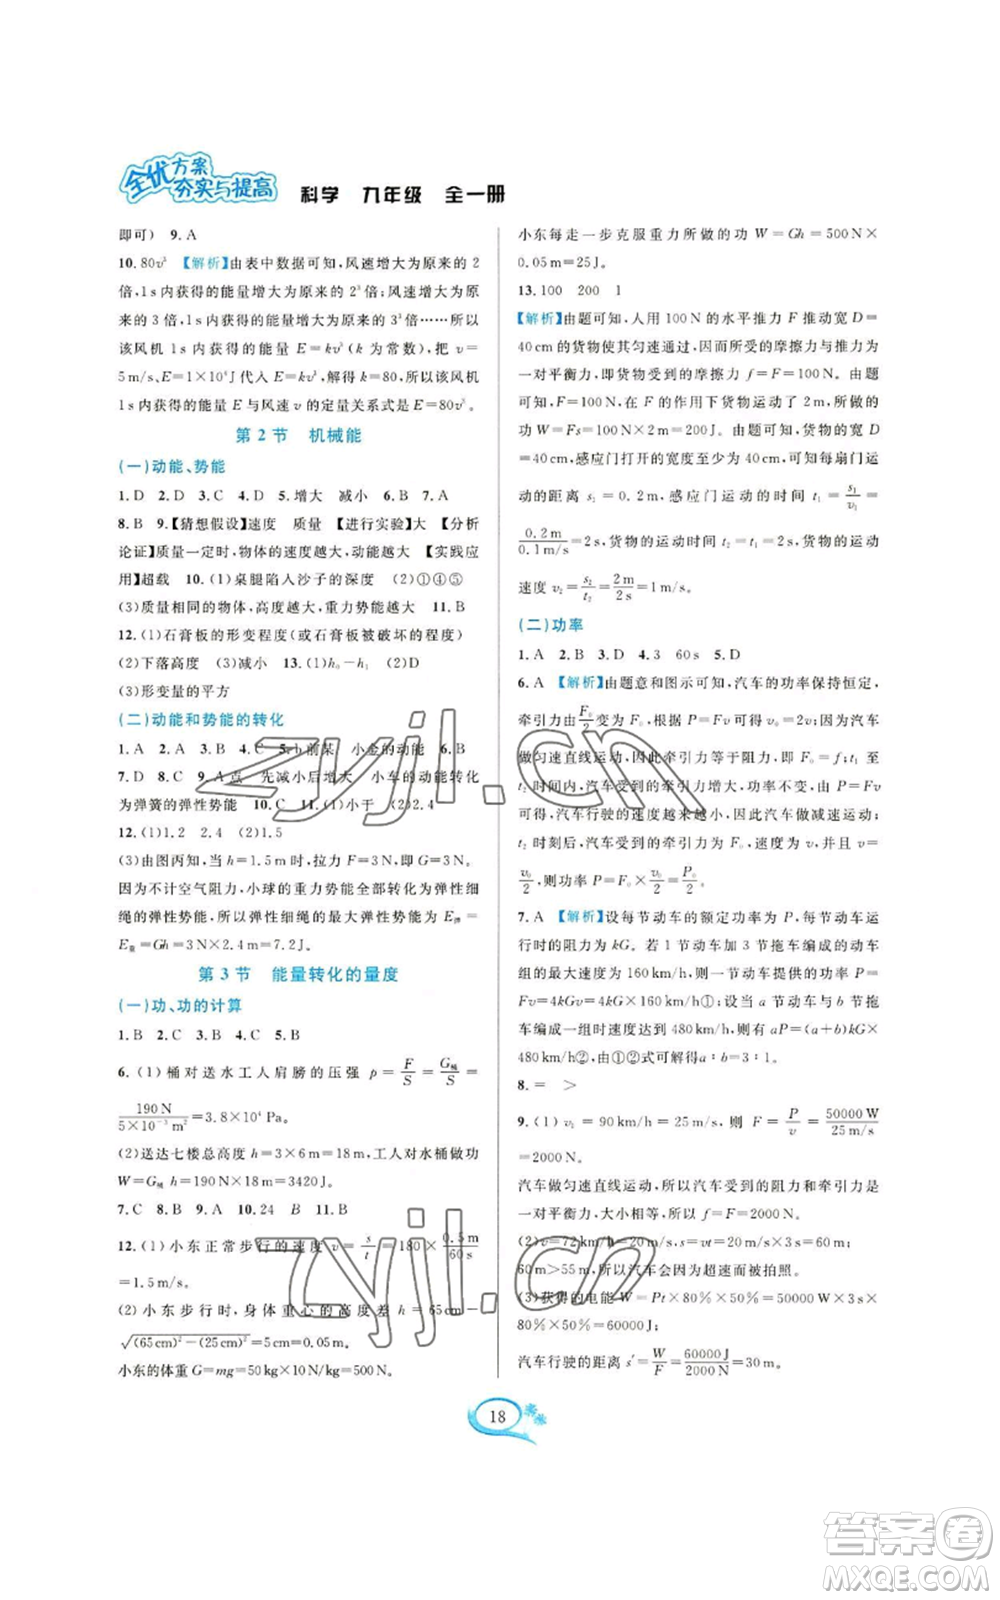 全优方案
夯实与提高
科学 九年级 全一册
即可) 9.A
10.80v³ 【解析】由表中数据可知,风速增大为原来的2
倍,1s内获得的能量增大为原来的2³倍;风速增大为
原来的3倍,1s内获得的能量增大为原来的3³倍……所以
该风机1s内获得的能量E=kv³(k为常数),把v=
5m/s、E=1×10⁴J代入E=kv³,解得k=80,所以该风机
1s内获得的能量E与风速v的定量关系式是E=80v³。
第2节 机械能
(一)动能、势能
1.D 2.D 3.C 4.D 5.增大 减小 6.B 7.A
8.B 9.【猜想假设】速度 质量 【进行实验】大 【分析
论证】质量一定时,物体的速度越大,动能越大 【实践应
用】超载 10.(1)桌腿陷入沙子的深度 (2)①④⑤
(3)质量相同的物体,高度越大,重力势能越大 11.B
12.(1)石膏板的形变程度(或石膏板被破坏的程度)
(2)下落高度 (3)减小 13.(1)h₀−h₁ (2)
(3)形变量的平方
(二)动能和势能的转化
1.A 2.A 3.B 4.C 5.b 前某 小金的动能 6.B
7.D 8.C 9.A点 先减小后增大 小车的动能转化
为弹簧的弹性势能 10.C 11.(1)小于 (2)2.4
12.(1)1.2 2.4 (2)1.5
(3)由图丙知,当h=1.5m时,拉力F=3N,则G=3N,
因为不计空气阻力,小球的重力势能全部转化为弹性细
绳的弹性势能,所以弹性细绳的最大弹性势能E弹=
E重=Gh=3N×2.4m=7.2J。
第3节 能量转化的量度
(一)功、功的计算
1.B 2.C 3.C 4.C 5.B
6.(1)桶对送水工人肩膀的压强 p=F/S=G桶/S=
190N/5×10⁻³m²=3.8×10⁴Pa。
(2)送达七楼总高度h=3×6m=18m,工人对水桶做功
W=G桶h=190N×18m=3420J。
7.C 8.B 9.A 10.24 B 11.B
12.(1)小东正常步行的速度 v=s/t=180×0.5m/60s
=1.5m/s。
(2)小东步行时,身体重心的高度差 h=65cm−
√(65cm)²−(25cm)²=5cm=0.05m。
小东的体重G=mg=50kg×10N/kg=500N。
小东每走一步克服重力所做的功W=Gh=500N×
0.05m=25J。
13.100 200 1
【解析】由题可知,人用100N的水平推力F推动宽D=
40cm的货物使其匀速通过,因而所受的摩擦力与推力为
一对平衡力,即货物受到的摩擦力f=F=100N。由题
可知,在F的作用下货物运动了2m,所做的
功W=Fs=100N×2m=200J,货物的宽度D
=40cm,感应门打开的宽度至少为40cm,则每扇门运
动的距离s₁=0.2m,感应门运动的时间t₁=s₁/v₁=
0.2m/0.1m/s=2s,货物的运动时间t₂=t₁=2s,货物的运动
速度v₂=s₂/t₂=2m/2s=1m/s。
(二)功率
1.A 2.B 3.D 4.3 60s 5.D
6.A 【解析】由题意和图示可知,汽车的功率保持恒定,
牵引力由F₀/2变为F₀,根据P=Fv可得v₀=2v;汽车
做匀速直线运动,因此牵引力等于阻力,即F₀=f;t₁至
t₂时间内,汽车受到的牵引力增大,根据公式P=Fv
可得,汽车行驶的速度越来越小,因此汽车做减速运动,
t₂时刻汽车的速度为v₀/2,所受的牵引力为F₀,并且v=
v₀/2,则功率P=F₀×v₀/2=P₀/2。
7.A 【解析】设每节动车的额定功率为P,每节车运
行时的阻力为kG。若1节动车加3节拖车编成的动车
组的最大速度为160km/h,动车提供的功率P=
Fv=4kGv=4kG×160km/h①;设当a节动车和b节拖
车编成一组时速度达到480km/h,aP=(a+b)kG×
480km/h②,由①②式可解得a∶b=3∶1。
8.= >
9.(1)v₁=90km/h=25m/s,则F=P/v=50000W/25m/s
=2000N。
汽车做匀速直线运动,所以汽车受到的阻力和牵引力为
一对平衡力,大小相等,所以f=F=2000N。
(2)v₂=72km/h=20m/s,s=vt=20m/s×3s=60m;
60m>55m,所以汽车会因为超速而被拍照。
(3)获得的电能W=Pt×80%×80%=50000W×3s×
80%×80%=60000J,
汽车行驶的距离s′=W/F=60000J/2000N=30m。
18
zyjl.cn
zyjl.cn
答案圈
MXQE.COM